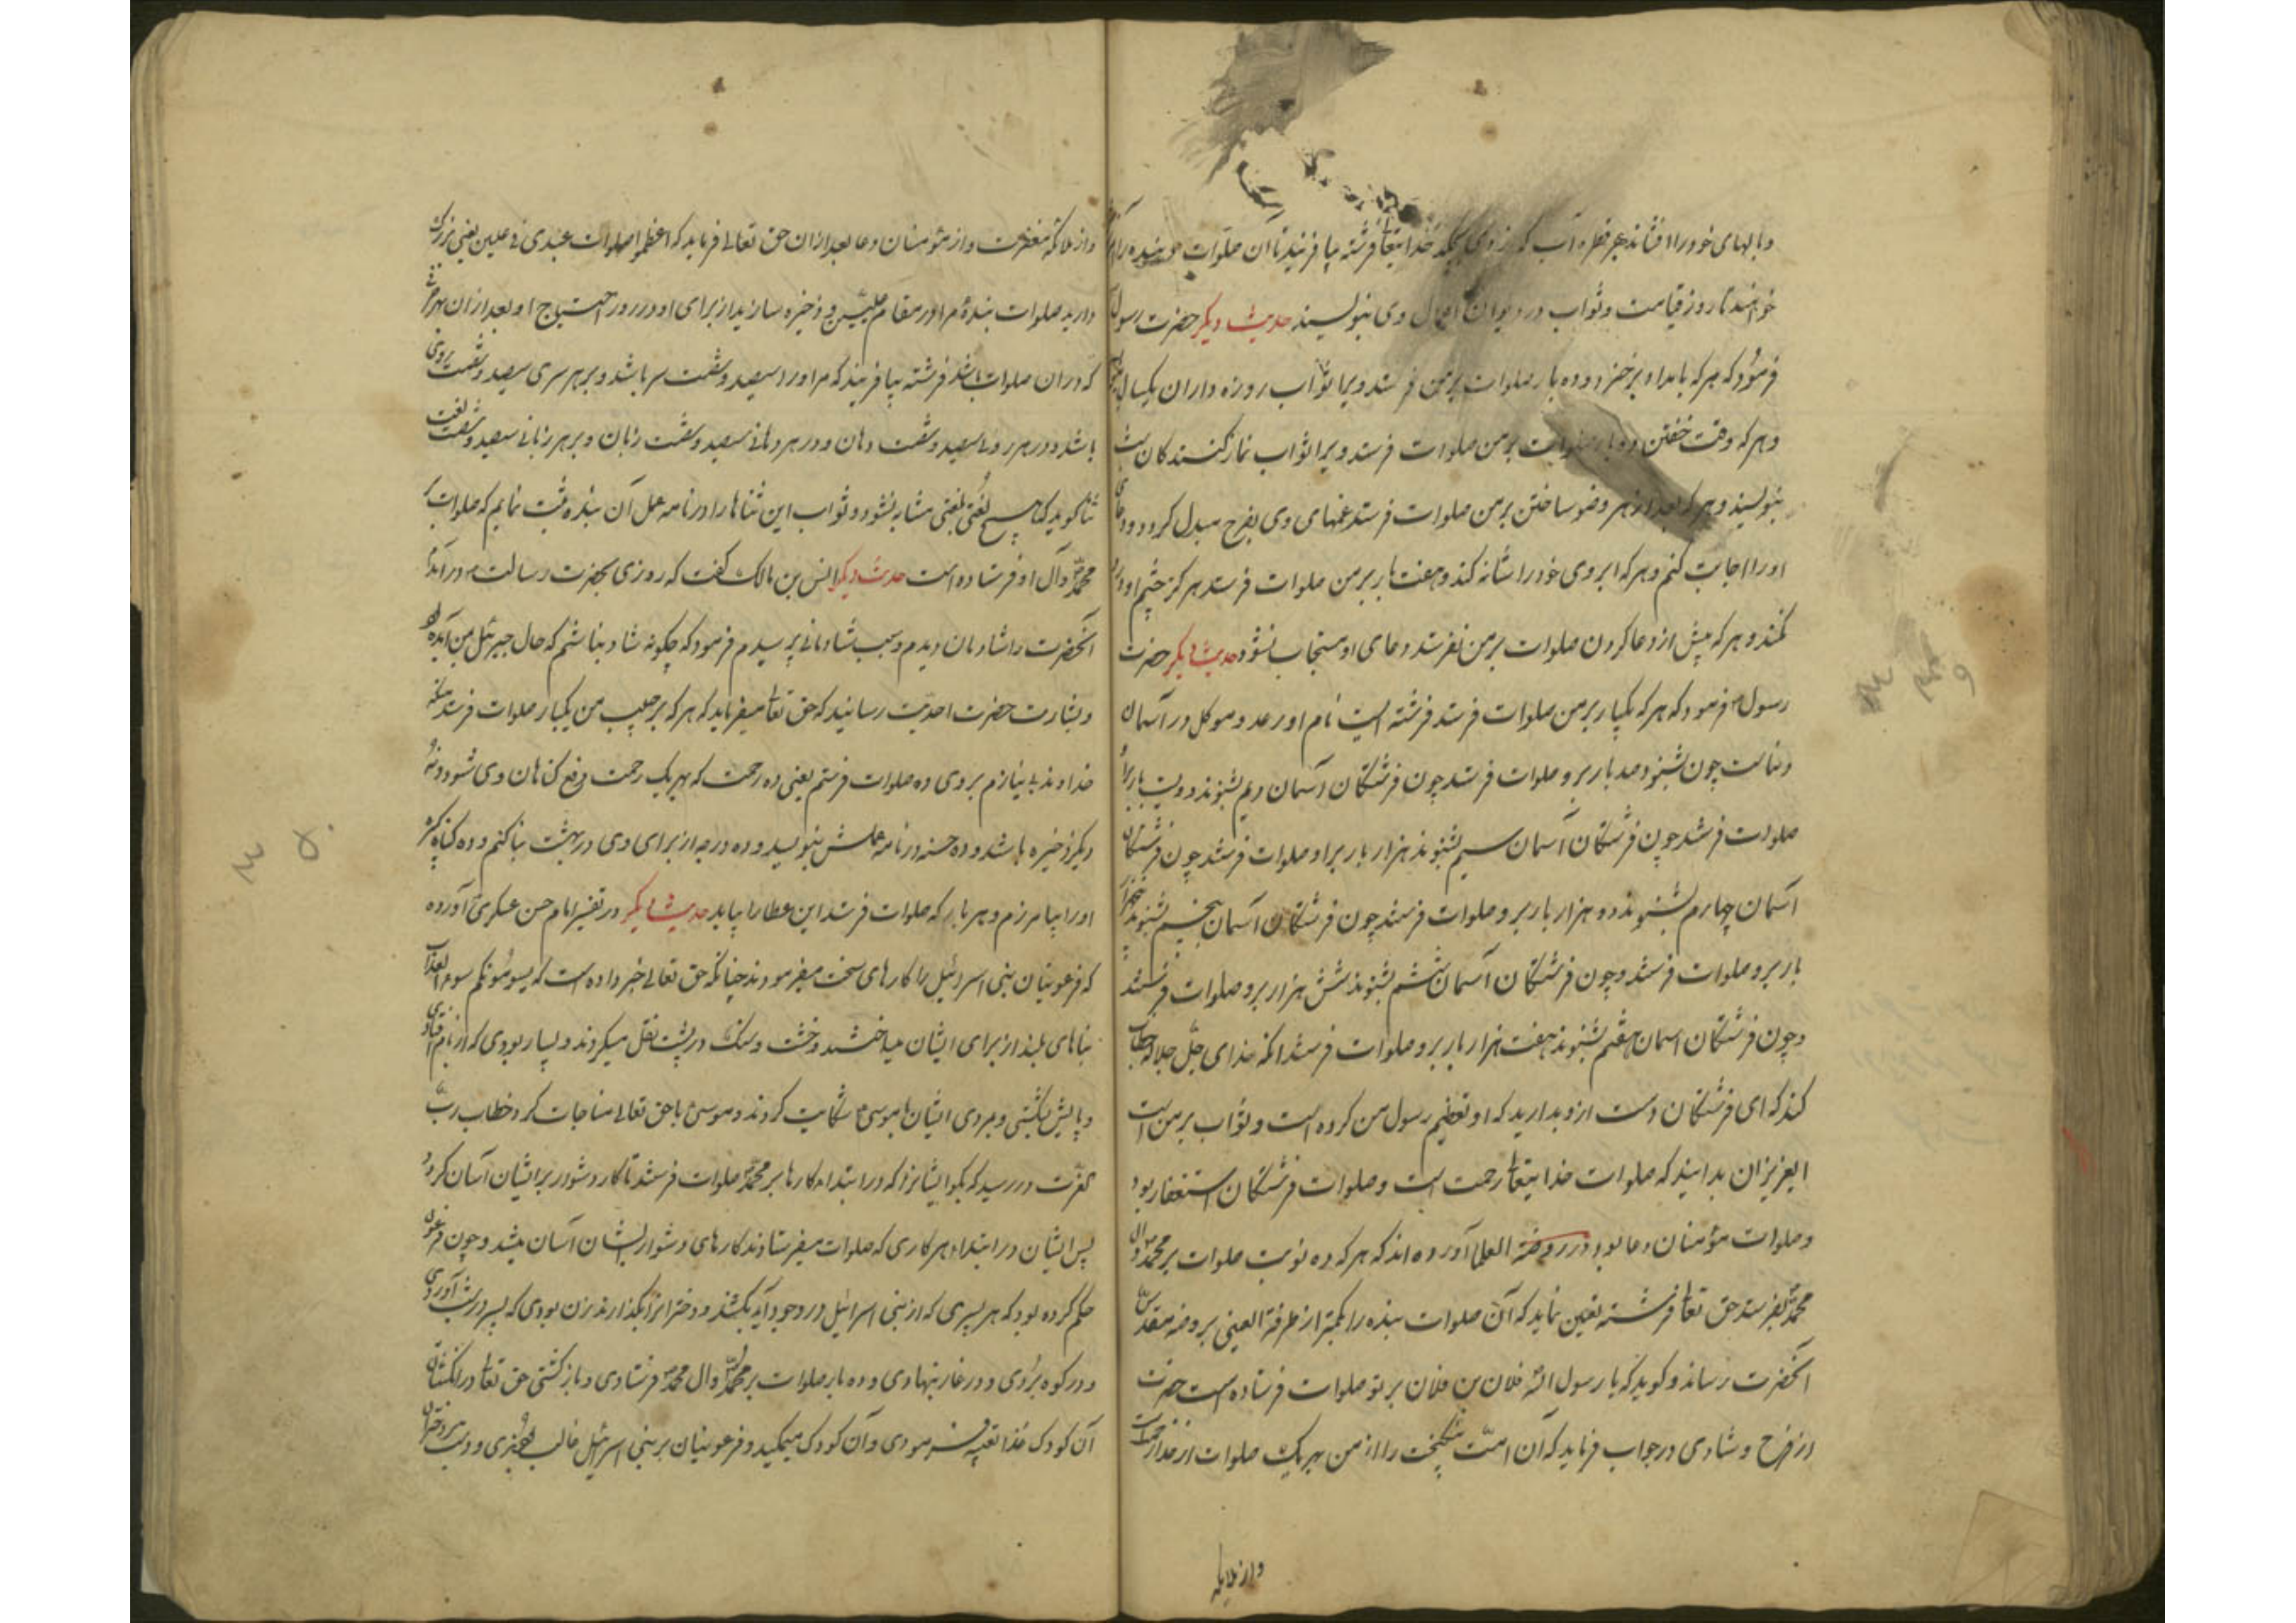 وبالهای خود را افشاند هر قطره آب که از وی بچکد خدایتعالی فرشته بیافریند تا آن صلوات بنده را
خوانند تا روز قیامت و ثواب در دیوان اعمال وی بنویسند حدیث دیگر حضرت رسول
فرمود که هر که بامداد برخیزد و ده بار صلوات بر من فرستد ویرا ثواب روزه داران یکسال
و هر که وقت خفتن ده بار صلوات بر من صلوات فرستد ویرا ثواب نماز کنندکان شب
بنویسند و هر که بعد از هر وضو ساختن بر من صلوات فرستد غمهای وی بفرح مبدل کردد و دعای
او را اجابت کنم و هر که ابروی خود را شانه کند و هفت بار بر من صلوات فرستد هرکز چشم او درد
نکند و هر که پیش از دعا کردن صلوات بر من نفرستد دعای او مستجاب نشود حدیث دیگر حضرت
رسول فرمود که هر که یکبار بر من صلوات فرستد فرشته ایست نام او رعد و موکل در آسمان
دنیاست چون بشنود صد بار برو صلوات فرستد چون فرشتکان آسمان دویم بشنوند دویست بار برو
صلوات فرستند چون فرشتکان آسمان سیم بشنوند هزار بار برو صلوات فرستند چون فرشتکان
آسمان چهارم بشنوند دو هزار بار برو صلوات فرستند چون فرشتکان آسمان پنجم بشنوند
بار برو صلوات فرستند و چون فرشتکان آسمان ششم بشنوند شش هزار برو صلوات فرستند
و چون فرشتکان اسمان هفتم بشنوند هفت هزار بار برو صلوات فرستند انکه خدای جل جلاله خطاب
کند که ای فرشتکان دست ازو بدارید که او تعظیم رسول من کرده است و ثواب بر من است
ایعزیزان بدانید که صلوات خدایتعالی رحمت است و صلوات فرشتکان استغفار بود
و صلوات مؤمنان دعا بود در روضة العلما آورده اند که هر که ده نوبت صلوات بر محمد و آل
محمد بفرستد حق تعالی فرشته تعیین نماید که آن صلوات بنده را کمتر از طرفة العینی بروضه مقدس
آنحضرت رساند و کوید که یا رسول الله فلان بن فلان بر تو صلوات فرستاده است حضرت
از فرح و شادی در جواب فرماید که آن امت نیکبخت را از من بهر یک صلوات از خدا رحمت
واز ملایکه
واز ملائکه مغفرت و از مؤمنان دعا بعد از ان حق تعالی فرماید که اعظموا صلوات عبدی فی علیین یعنی بزرک
دارید صلوات بنده مرا در مقام علیین و ذخیره سازید از برای او در روز احتیاج او بعد از ان بهر حرفی
که در ان صلوات باشد فرشته بیافریند که مر او را سیصد و شصت سر باشد و بر هر سری سیصد و شصت روی
باشد و در هر روی سیصد و شصت دهان و در هر دهانی سیصد و شصت زبان و بر هر زبانی سیصد و شصت لغت
ثنا کوید که هیچ لغتی بلغتی مشابه نشود و ثواب این ثناها را در نامه عمل آن بنده ثبت نمایم که صلوات بر
محمد و آل او فرستاده است حدیث دیگر انس بن مالک گفت که روزی بحضرت رسالت در آمدم
آنحضرت را شادمان دیدم و سبب شادمانی پرسیدم فرمود که چکونه شاد نباشم که حال جبرئیل بمن آمده
و بشارت حضرت احدیت رسانید که حق تعالی میفرماید که هر که بر حبیب من یکبار صلوات فرستد منکه
خداوند بی نیازم بر وی ده صلوات فرستم یعنی ده رحمت که بهر یک رحمت رفع کناهان وی شود و نه
دیکر ذخیره باشد و ده حسنه در نامه عملش بنویسد و ده درجه از برای وی در بهشت بنا کنم و ده کناه کبیره
او را بیامرزم و هر بار که صلوات فرستد این عطا را بیابد حدیث دیگر در تفسیر امام حسن عسکری آورده
که فرعونیان بنی اسرائیل را کارهای سخت میفرمودند چنانکه حق تعالی خبر داده است که یسومونکم سوء العذاب
بناهای بلند از برای ایشان میساختند و خشت و سنک در پشت نقل میکردند و بسیار بودی که از بام افتادی
و پایش شکستی و مردی ایشان بموسی شکایت کردند و موسی با حق تعالی مناجات کرد خطاب رب
العزت در رسید که بکو ایشانرا که در ابتداء کارها بر محمد صلوات فرستند تا کار دشوار بر ایشان آسان کردد
پس ایشان در ابتداء هر کاری که صلوات میفرستادند کارهای دشوار بایشان آسان میشد و چون فرعون
حکم کرده بود که هر پسری که از بنی اسرائیل در وجود آید بکشند و دختر انرا بکذارند زن بودی که پسر در شب آوردی
و در کوه بردی و در غار بنهادی و ده بار صلوات بر محمد و آل محمد فرستادی و باز کشتی حق تعالی در انکشتان
آن کودک غذا تعبیه فرمودی و آن کودک میمکید و فرعونیان بر بنی اسرائیل غالب